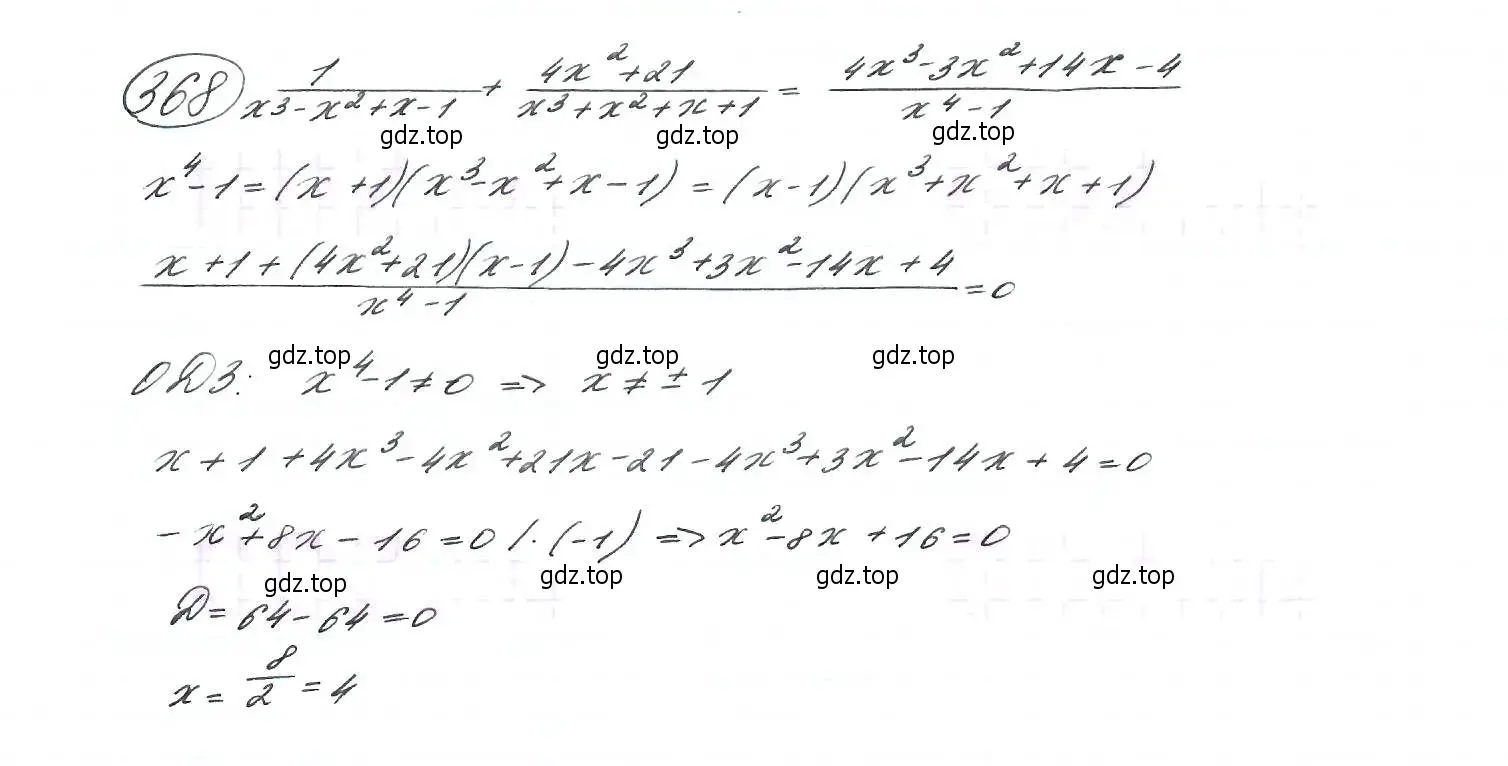 368 1/(x³-x²+x-1) + (4x²+21)/(x³+x²+x+1) = (4x³-3x²+14x-4)/(x⁴-1)
gdz.top gdz.top gdz.top
x⁴-1=(x+1)(x³-x²+x-1)=(x-1)(x³+x²+x+1)
(x+1+(4x²+21)(x-1)-4x³+3x²-14x+4)/(x⁴-1)=0
gdz.top gdz.top gdz.top
ОДЗ: x⁴-1≠0 => x≠±1
x+1+4x³-4x²+21x-21-4x³+3x²-14x+4=0
-x²+8x-16=0 /·(-1) => x²-8x+16=0
gdz.top gdz.top gdz.top gdz.top
D=64-64=0
x=8/2=4